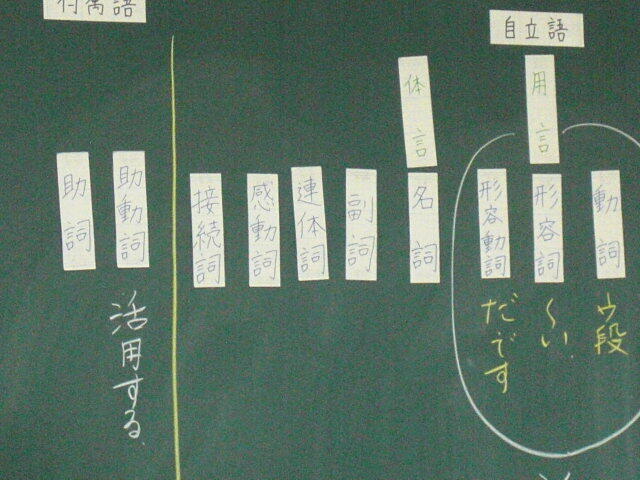 自立語
用言
動詞
ウ段
形容詞
〜い
形容動詞
だです
体言
名詞
副詞
連体詞
感動詞
接続詞
付属語
助動詞
活用する
助詞